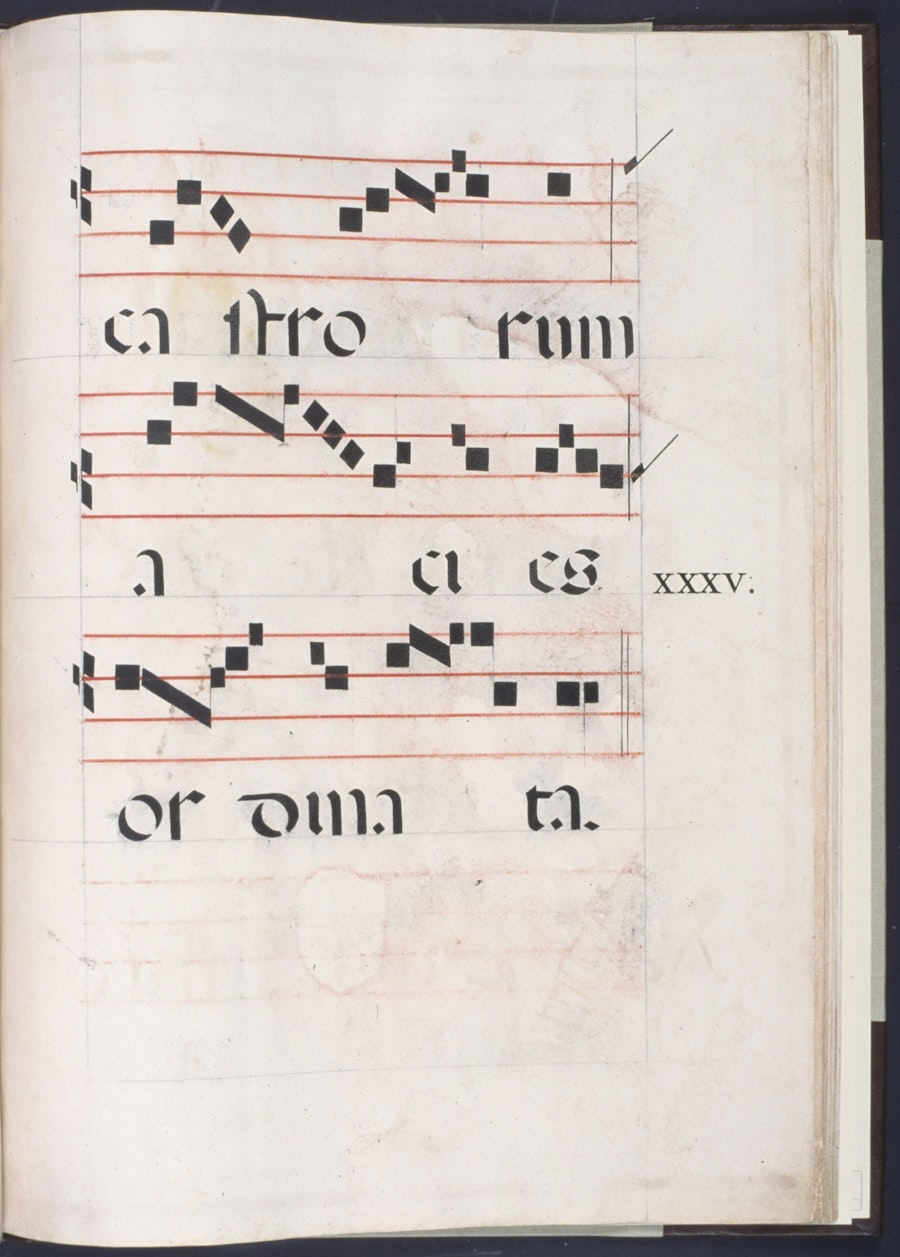 ca stro rum
a ci es
XXXV:
or dina ta.